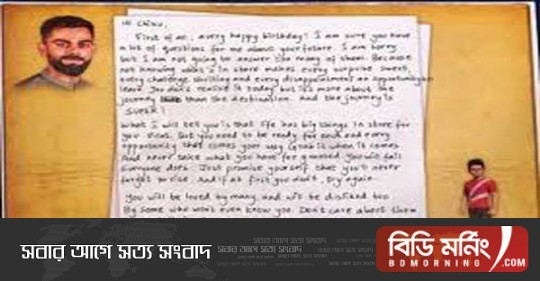 Hi Chiku,
First of all, a very happy birthday! I am sure you have
a lot of questions for me about your future. I am sorry
but I am not going to answer too many of them. Because
not knowing what's in store makes every surprise sweet,
every challenge thrilling and every disappointment an opportunity to
learn. You don't realise it today but it's more about the
journey than the destination. And the journey is
SUPER!
What I will tell you is that life has big things in store for
you Virat. But you need to be ready for each and every
opportunity that comes your way. Grab it when it comes.
And never take what you have for granted. You will fail.
Everyone does. Just promise yourself that you'll never
forget to rise. And if at first you don't, try again.
You will be loved by many, and will be disliked too
By some who won't even know you. Don't care about them
সবার আগে সত্য সংবাদ
বিডি মর্নিং
BDMORNING .COM